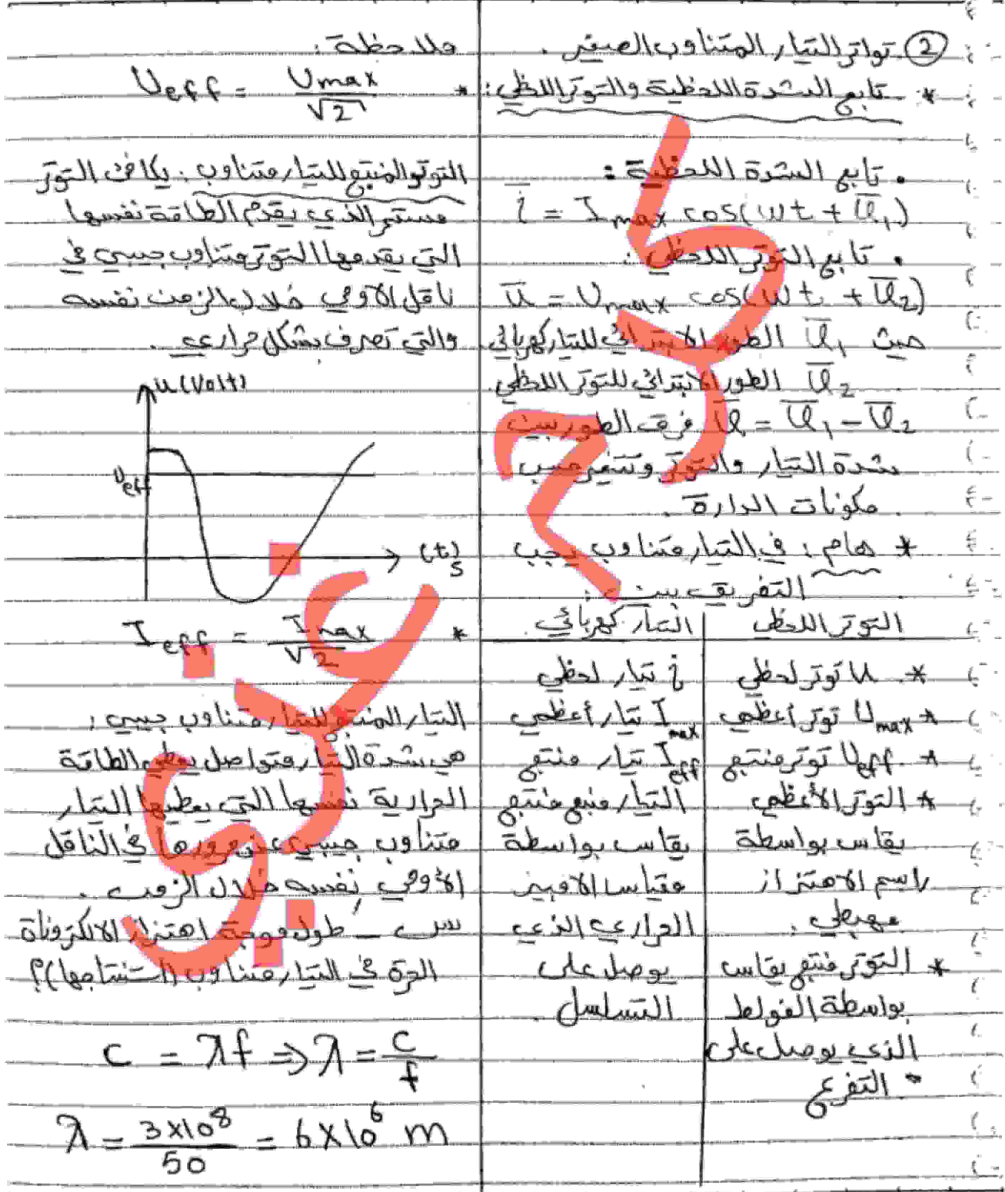 ② تواتر التيار المتناوب الصغير.
* تابع الشدة اللحظية والتوتر اللحظي:
• تابع الشدة اللحظية:
i̅ = I_max cos(ωt + φ̅₁)
• تابع التوتر اللحظي:
u̅ = U_max cos(ωt + φ̅₂)
حيث φ̅₁ الطور الابتدائي للتيار كهربائي
φ̅₂ الطور الابتدائي للتوتر اللحظي.
φ̅ = φ̅₁ - φ̅₂ فرق الطور بين
شدة التيار والتوتر وتتغير حسب
مكونات الدارة.
* هام: في التيار متناوب يجب
التفريق بين:
التوتر اللحظي
* u توتر لحظي
* U_max توتر أعظمي
* U_eff توتر منتج
* التوتر الأعظمي
يقاس بواسطة
راسم الاهتزاز
مهبطي.
* التوتر منتج يقاس
بواسطة الفولط
الذي يوصل على
التفرع.
التيار كهربائي
i تيار لحظي
I_max تيار أعظمي
I_eff تيار منتج
التيار منتج منتج
يقاس بواسطة
مقياس الامبير
الحراري الذي
يوصل على
التسلسل.
ملاحظة:
* U_eff = U_max / √2
التوتر المنتج للتيار متناوب: يكافئ التوتر
مستمر الذي يقدم الطاقة نفسها
التي يقدمها التوتر متناوب جيبي في
ناقل الأومي خلال الزمن نفسه
والتي تصرف بشكل حراري.
u(Volt)
U_eff
(t)s
* I_eff = I_max / √2
التيار المنتج للتيار متناوب جيبي:
هي شدة التيار متواصل يعطي الطاقة
الحرارية نفسها التي يعطيها التيار
متناوب جيبي عند مرورها في الناقل
الأومي نفسه خلال الزمن.
س - طول موجة اهتزاز الالكترونات
الحرة في التيار متناوب (استنتاجها)؟
c = λf ⇒ λ = c/f
λ = 3×10⁸ / 50 = 6×10⁶ m
كرم
غزي